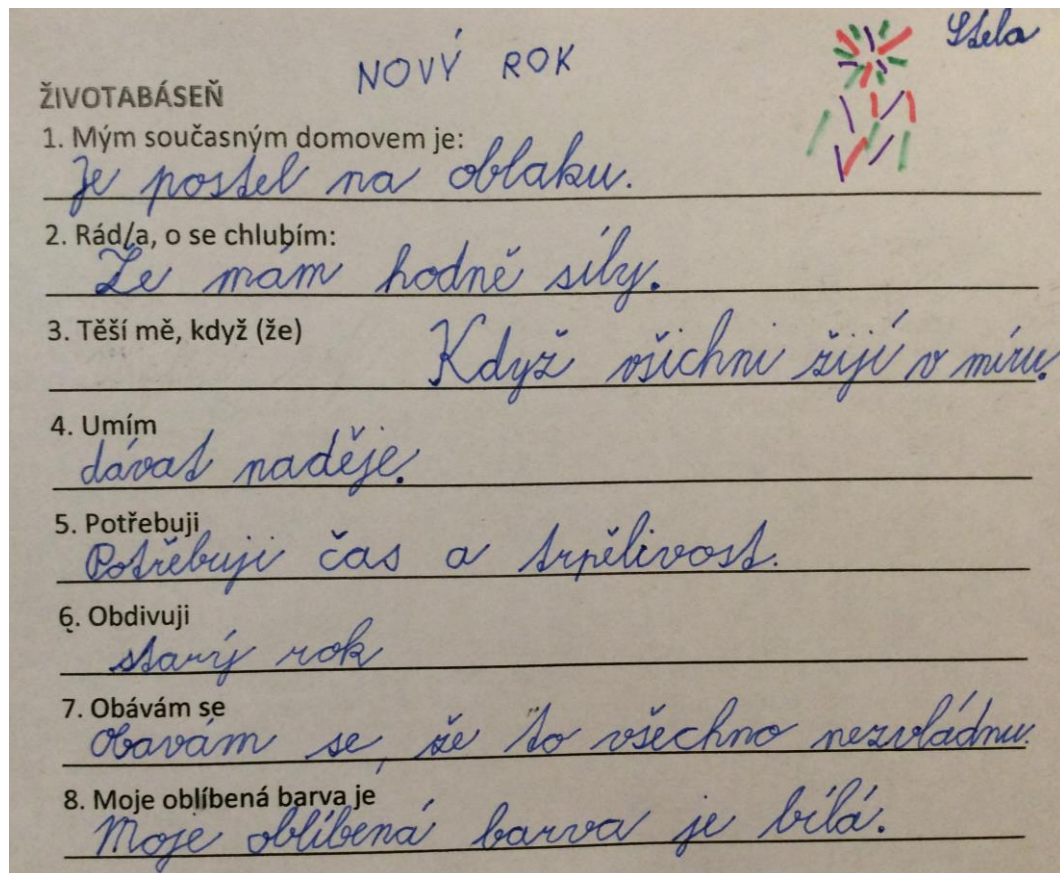 NOVÝ ROK
Stela
ŽIVOTABÁSEŇ
1. Mým současným domovem je:
Je postel na oblaku.
2. Rád/a, o se chlubím:
Že mám hodně síly.
3. Těší mě, když (že)
Když všichni žijí v míru.
4. Umím
dávat naděje.
5. Potřebuji
Potřebuji čas a trpělivost.
6. Obdivuji
starý rok
7. Obávám se
Obavám se, že to všechno nezvládnu.
8. Moje oblíbená barva je
Moje oblíbená barva je bílá.